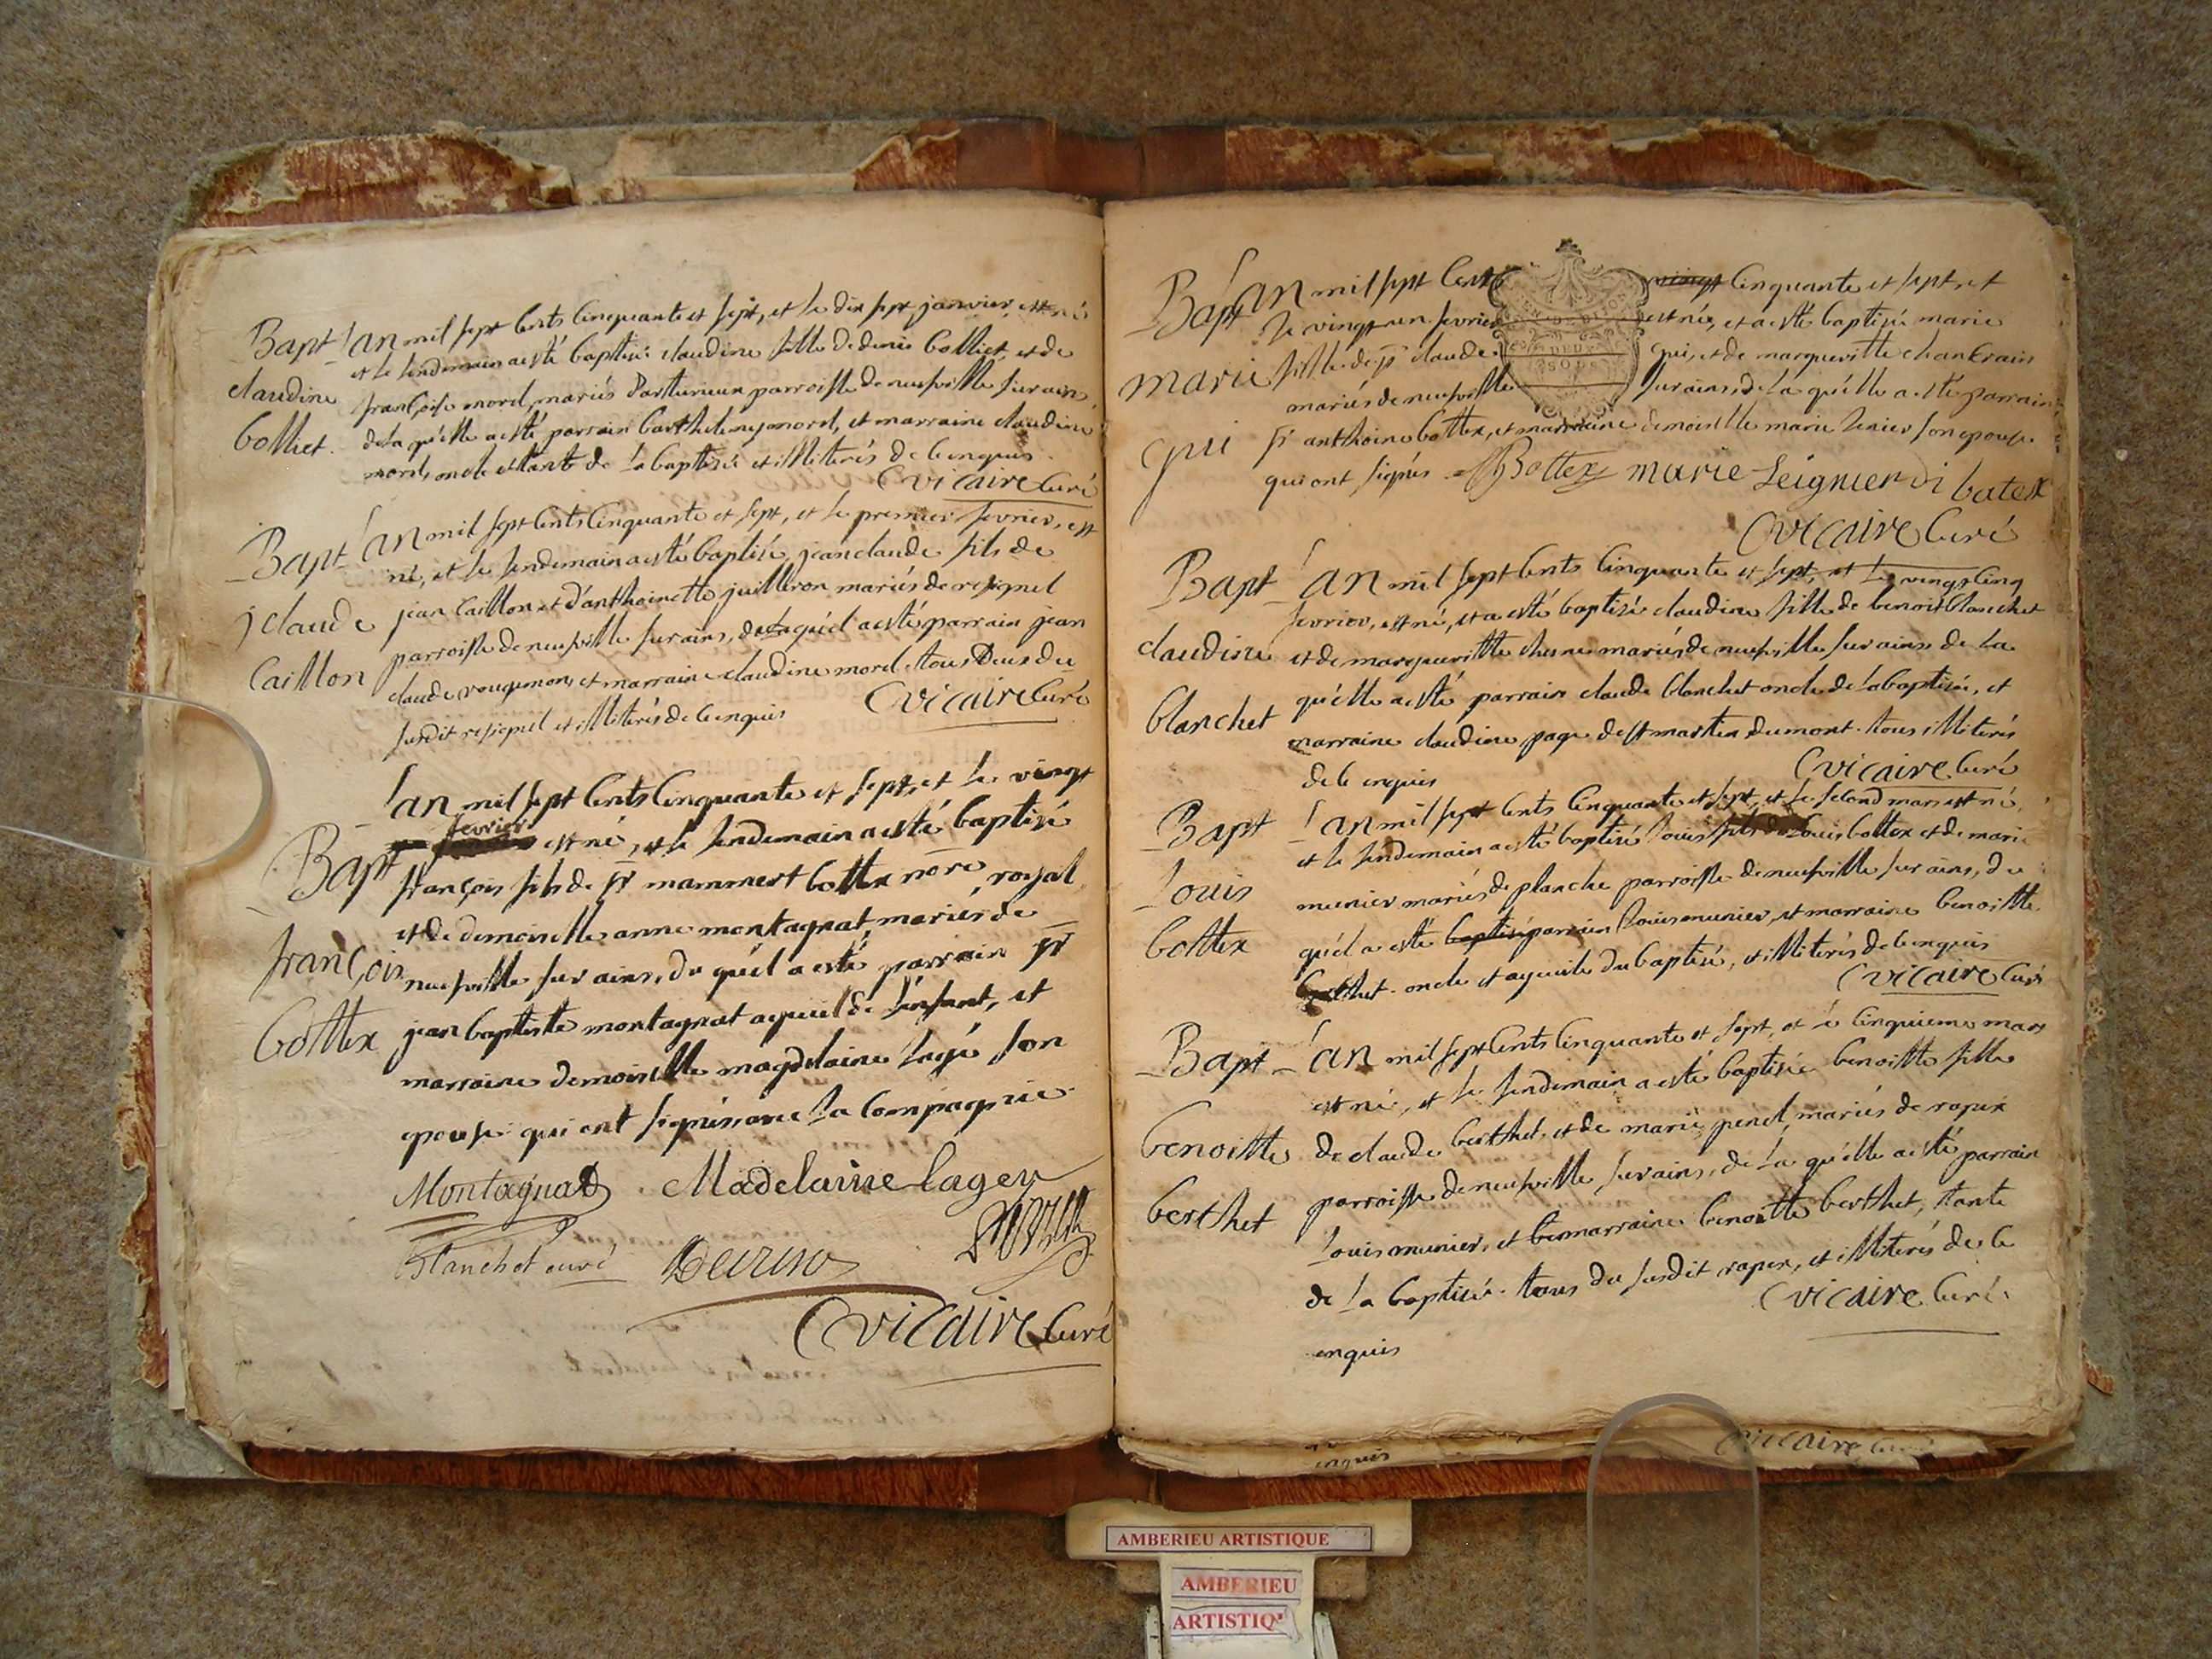 Bapt
claudine
Colliet.
L'an mil sept Cents Cinquante et sept, et le dix sept janvier, est né
et le lendemain a esté baptisé claudine fille de denis Colliet, et de
françoise morel, mariés parroisse de neufville sur ains,
de la quelle a esté parrain barthelemy morel, et marraine claudine
morel, oncle et tante de la baptisée et illiterés de ce enquis.
C vicaire Curé
Bapt
j claude
Caillon
L'an mil sept Cents Cinquante et sept, et le premier fevrier, est
né, et le lendemain a esté baptisé, jean claude fils de
jean Caillon et d'anthoinette juilleron mariés de resignel
parroisse de neufville sur ains, du quel a esté parrain jean
claude rougemont, et marraine claudine morel tous Deux du
susdit resignel et illiterés de ce enquis
C vicaire Curé
Bapt
françois
bottex
L'an mil sept Cents Cinquante et sept, et le vingt
fevrier est né, et le lendemain a esté baptisé
françois fils de sr mammert bottex nore royal
et de demoiselle anne montagnat, mariés de
neufville sur ains, du quel a esté parrain sr
jean baptiste montagnat ayeuil de l'enfant, et
marraine demoiselle magdelaine lagé son
epouse qui ont signés avec la Compagnie
Montagnat Madelaine lagey
Blanchet curé
C vicaire Curé
Bapt
marie
gui
L'an mil sept Cents vingt Cinquante et sept, et
le vingt un fevrier est née, et a esté baptisée marie
fille de sr claude gui, et de margueritte chankrain
mariés de neufville sur ains, de la quelle a esté parrain
sr anthoine bottex, et marraine demoiselle marie son epouse
qui ont signés Bottex marie Leignier di batex
C vicaire Curé
Bapt
claudine
blanchet
L'an mil sept Cents Cinquante et sept, et le vingt Cinq
fevrier, est né, et a esté baptisée claudine fille de benoist blanchet
et de margueritte chesne mariés de neufville sur ains de la
quelle a esté parrain claude blanchet oncle de la baptisée, et
marraine claudine page de st martin dumont. tous illiterés
de ce enquis
C vicaire Curé
Bapt
Louis
bottex
L'an mil sept Cents Cinquante et sept, et le second mars est né,
et le lendemain a esté baptisé Louis fils de Louis bottex et de marie
munier mariés de planche parroisse de neufville sur ains, du
quel a esté baptisé parrain Louis munier, et marraine benoitte
berthet. oncle et ayeuile du baptisé, et illiterés de ce enquis
C vicaire Curé
Bapt
benoitte
berthet
L'an mil sept Cents Cinquante et sept, et le Cinquieme mars
est né, et le lendemain a esté baptisée benoitte fille
de claude berthet, et de marie penel, mariés de rapex
parroisse de neufville sur ains, de la quelle a esté parrain
Louis munier, et marraine benoitte berthet, tante
de la baptisée. tous du susdit rapex, et illiterés de ce
enquis
C vicaire Curé.
enquis
vicaire
AMBERIEU ARTISTIQUE
AMBERIEU
ARTISTIQ